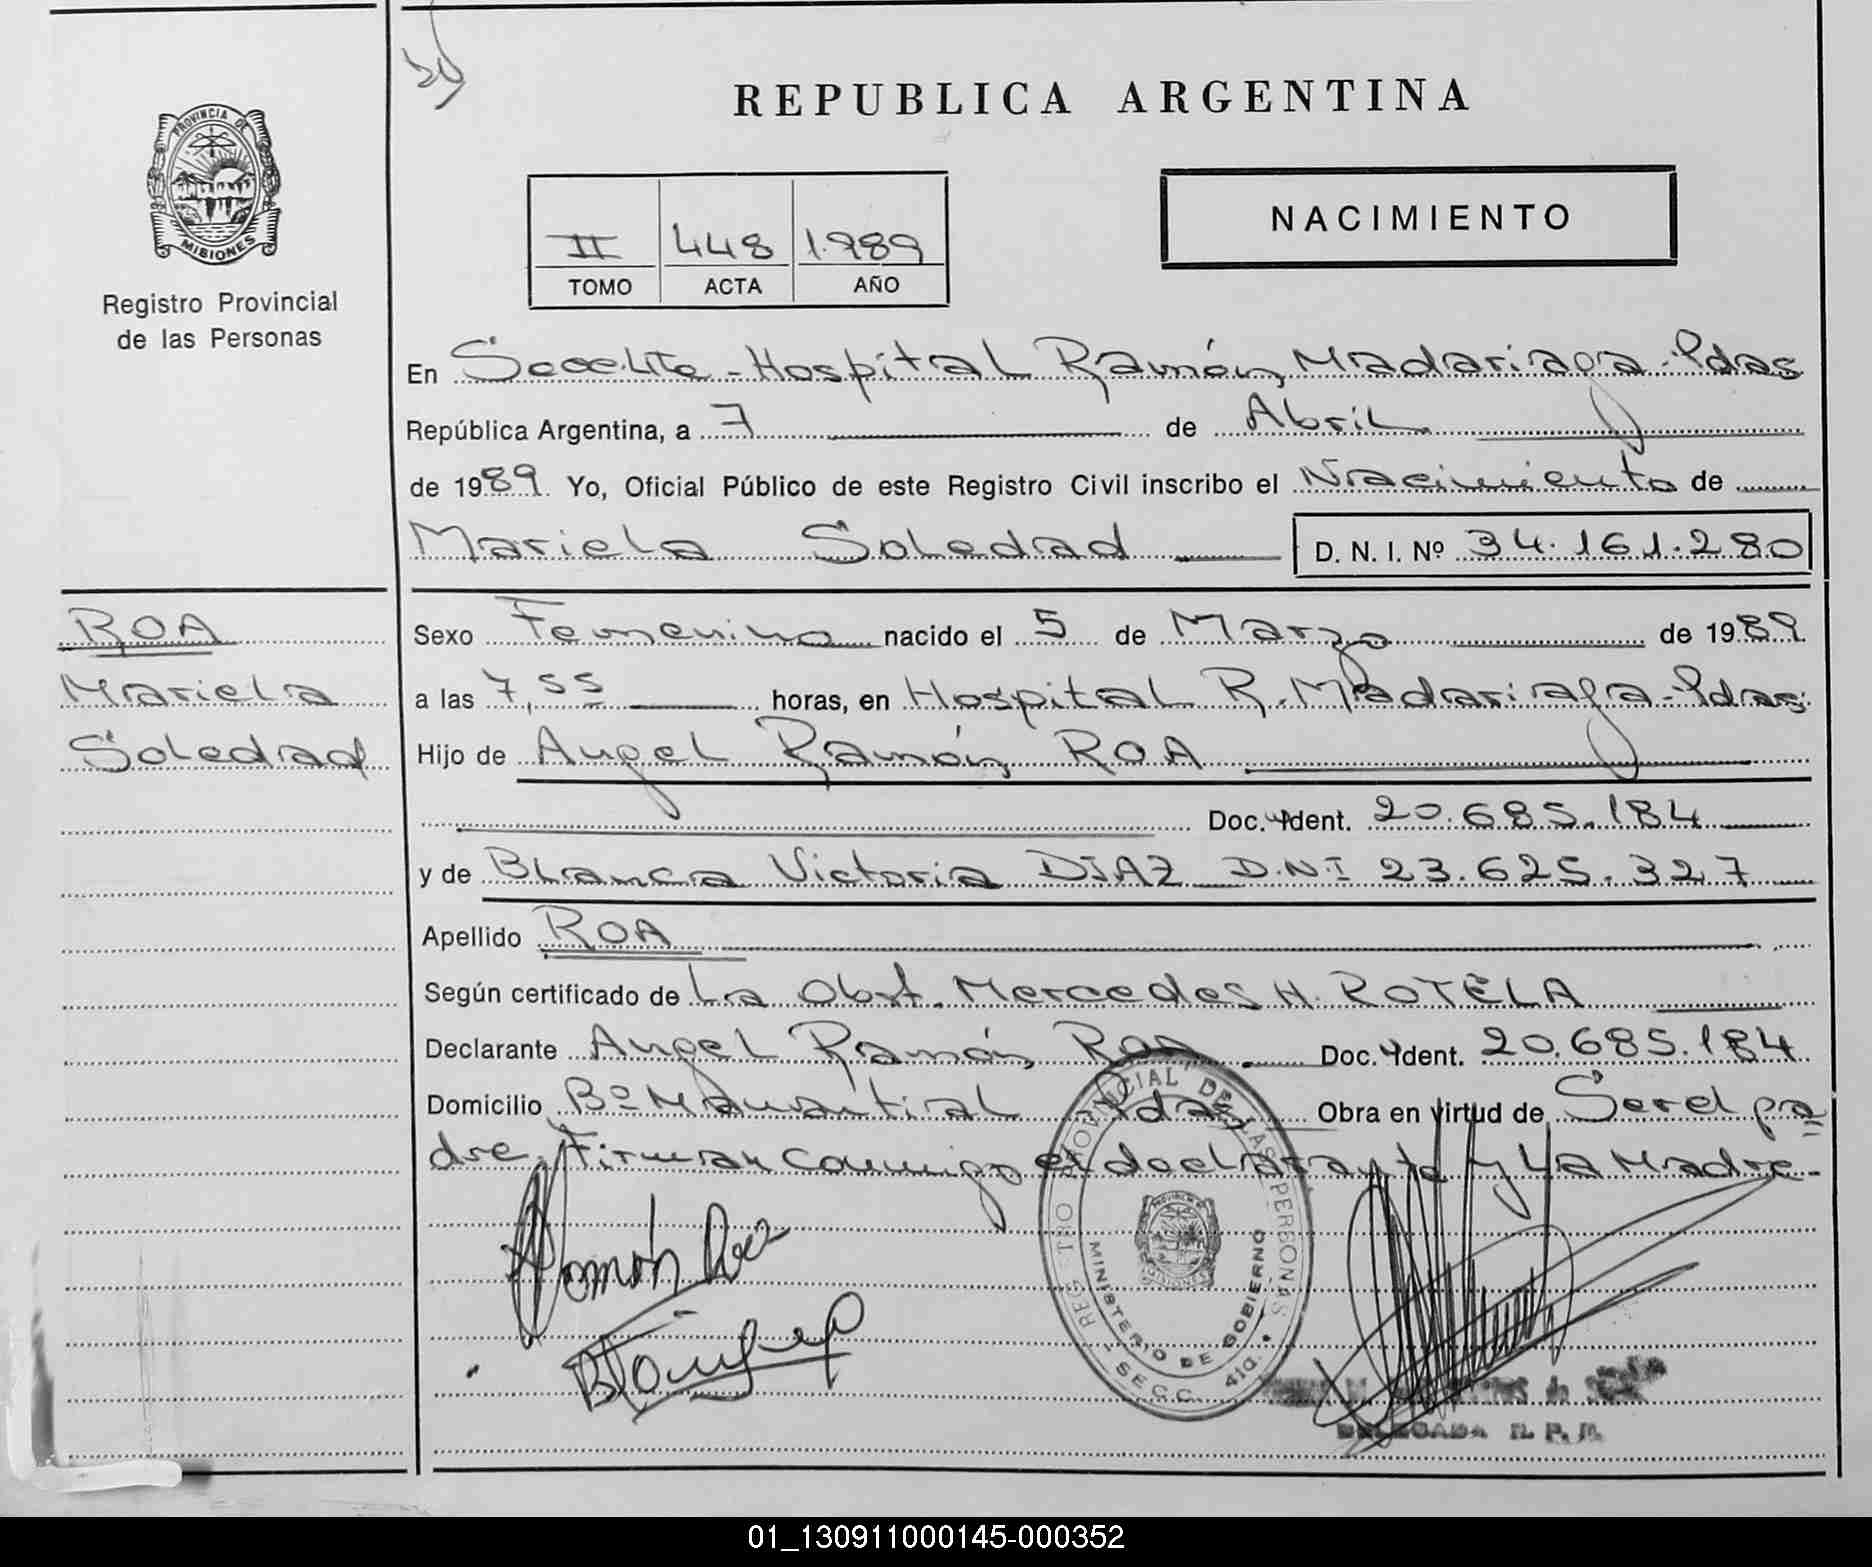 REPUBLICA ARGENTINA
PROVINCIA DE
MISIONES
Registro Provincial
de las Personas
II 448 1.989
TOMO ACTA AÑO
NACIMIENTO
En Hospital Ramón Madariaga - Pdas
República Argentina, a 7 de Abril
de 1989. Yo, Oficial Público de este Registro Civil inscribo el Nacimiento de
Mariela Soledad D. N. I. Nº 34.161.280
ROA
Mariela
Soledad
Sexo Femenino nacido el 5 de Marzo de 1989.
a las 7,55 horas, en Hospital R. Madariaga - Pdas.
Hijo de Angel Ramón ROA
Doc. Ident. 20.685.184
y de Blanca Victoria DIAZ D.N.I 23.625.327
Apellido ROA
Según certificado de La Obst. Mercedes H. ROTELA
Declarante Angel Ramón Roa Doc. Ident. 20.685.184
Domicilio Bº Manantial Pdas Obra en virtud de Ser el pa=
dre. Firman conmigo el declarante y la Madre.-
Ramón Roa
REGISTRO PROVINCIAL DE LAS PERSONAS
MINISTERIO DE GOBIERNO
SECC. 4ta.
PROVINCIA DE
MISIONES
DELEGADA R. P. P.
01_130911000145-000352